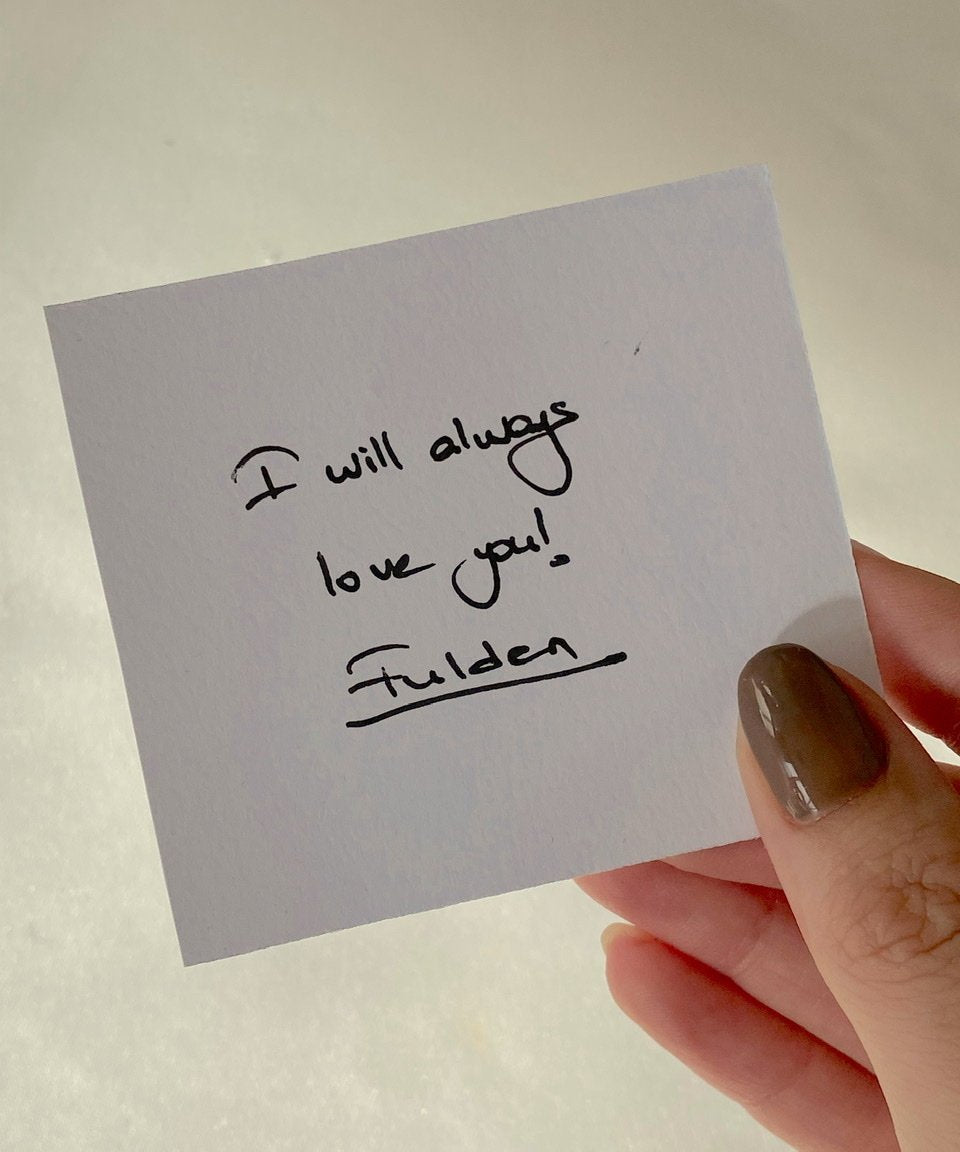 I will always
love you!
Fulden